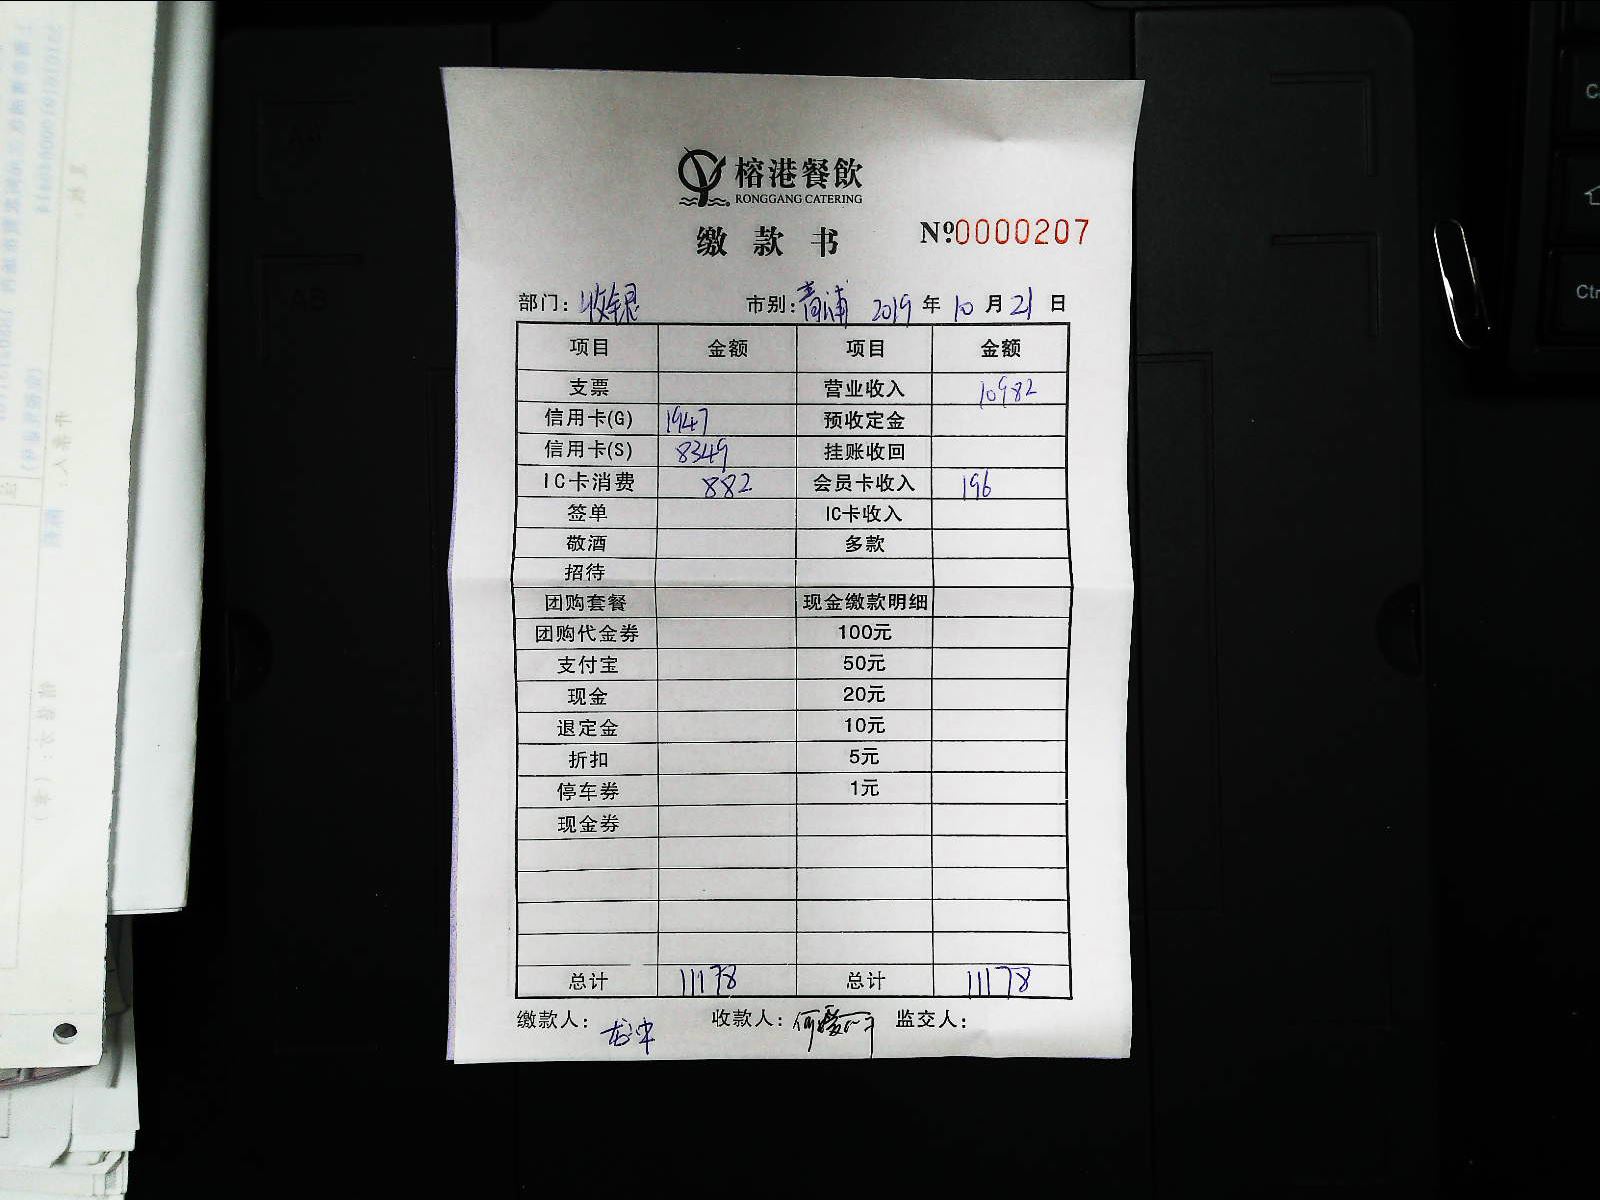 榕港餐飲
RONGGANG CATERING
缴款书
№0000207
部门：收银 市别：青浦 2019年10月21日
项目 金额 项目 金额
支票 营业收入 10982
信用卡(G) 1947 预收定金
信用卡(S) 8349 挂账收回
IC卡消费 882 会员卡收入 196
签单 IC卡收入
敬酒 多款
招待
团购套餐 现金缴款明细
团购代金券 100元
支付宝 50元
现金 20元
退定金 10元
折扣 5元
停车券 1元
现金券
总计 11178 总计 11178
缴款人： 收款人： 监交人：
Ctr